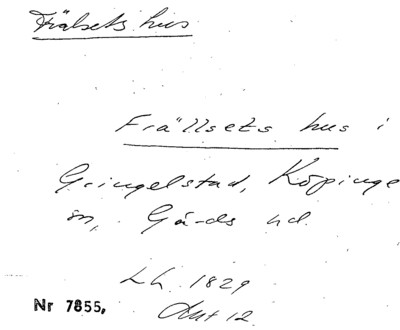 Frälsets hus
Frällsets hus i
Gringelstad, Köpinge
sn, Gärds hd.
Lh. 1829
Nr 7855, Aut 12